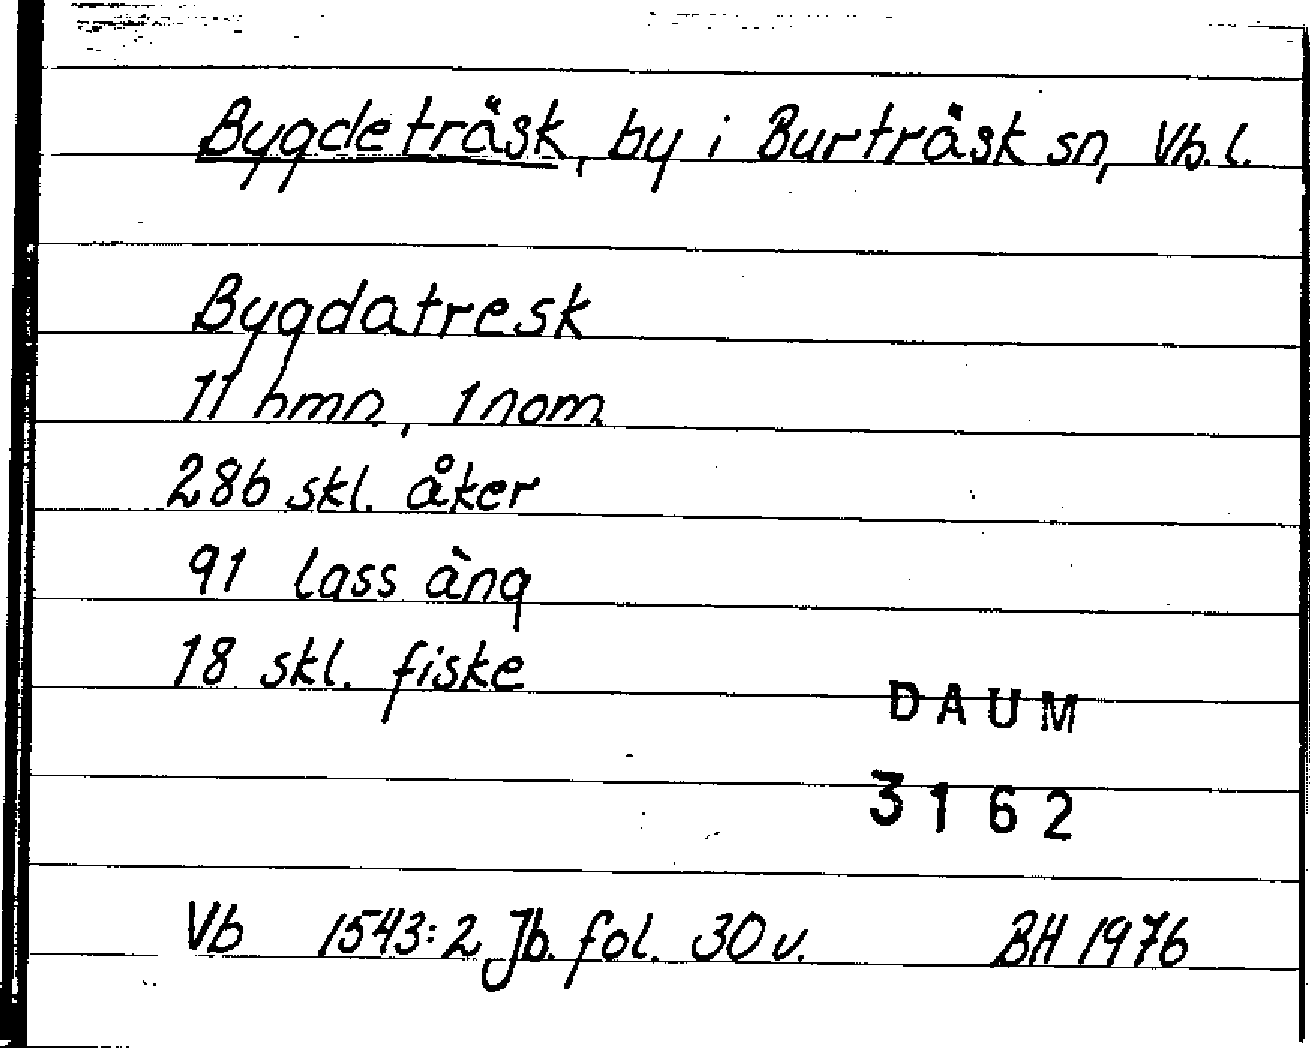 Bygdeträsk, by i Burträsk sn, Vb. l.
Bygdatresk
11 hmn, 1 nom
286 skl. åker
91 lass äng
18 skl. fiske
DAUM
3162
Vb 1543:2 Jb. fol. 30 v. BH 1976